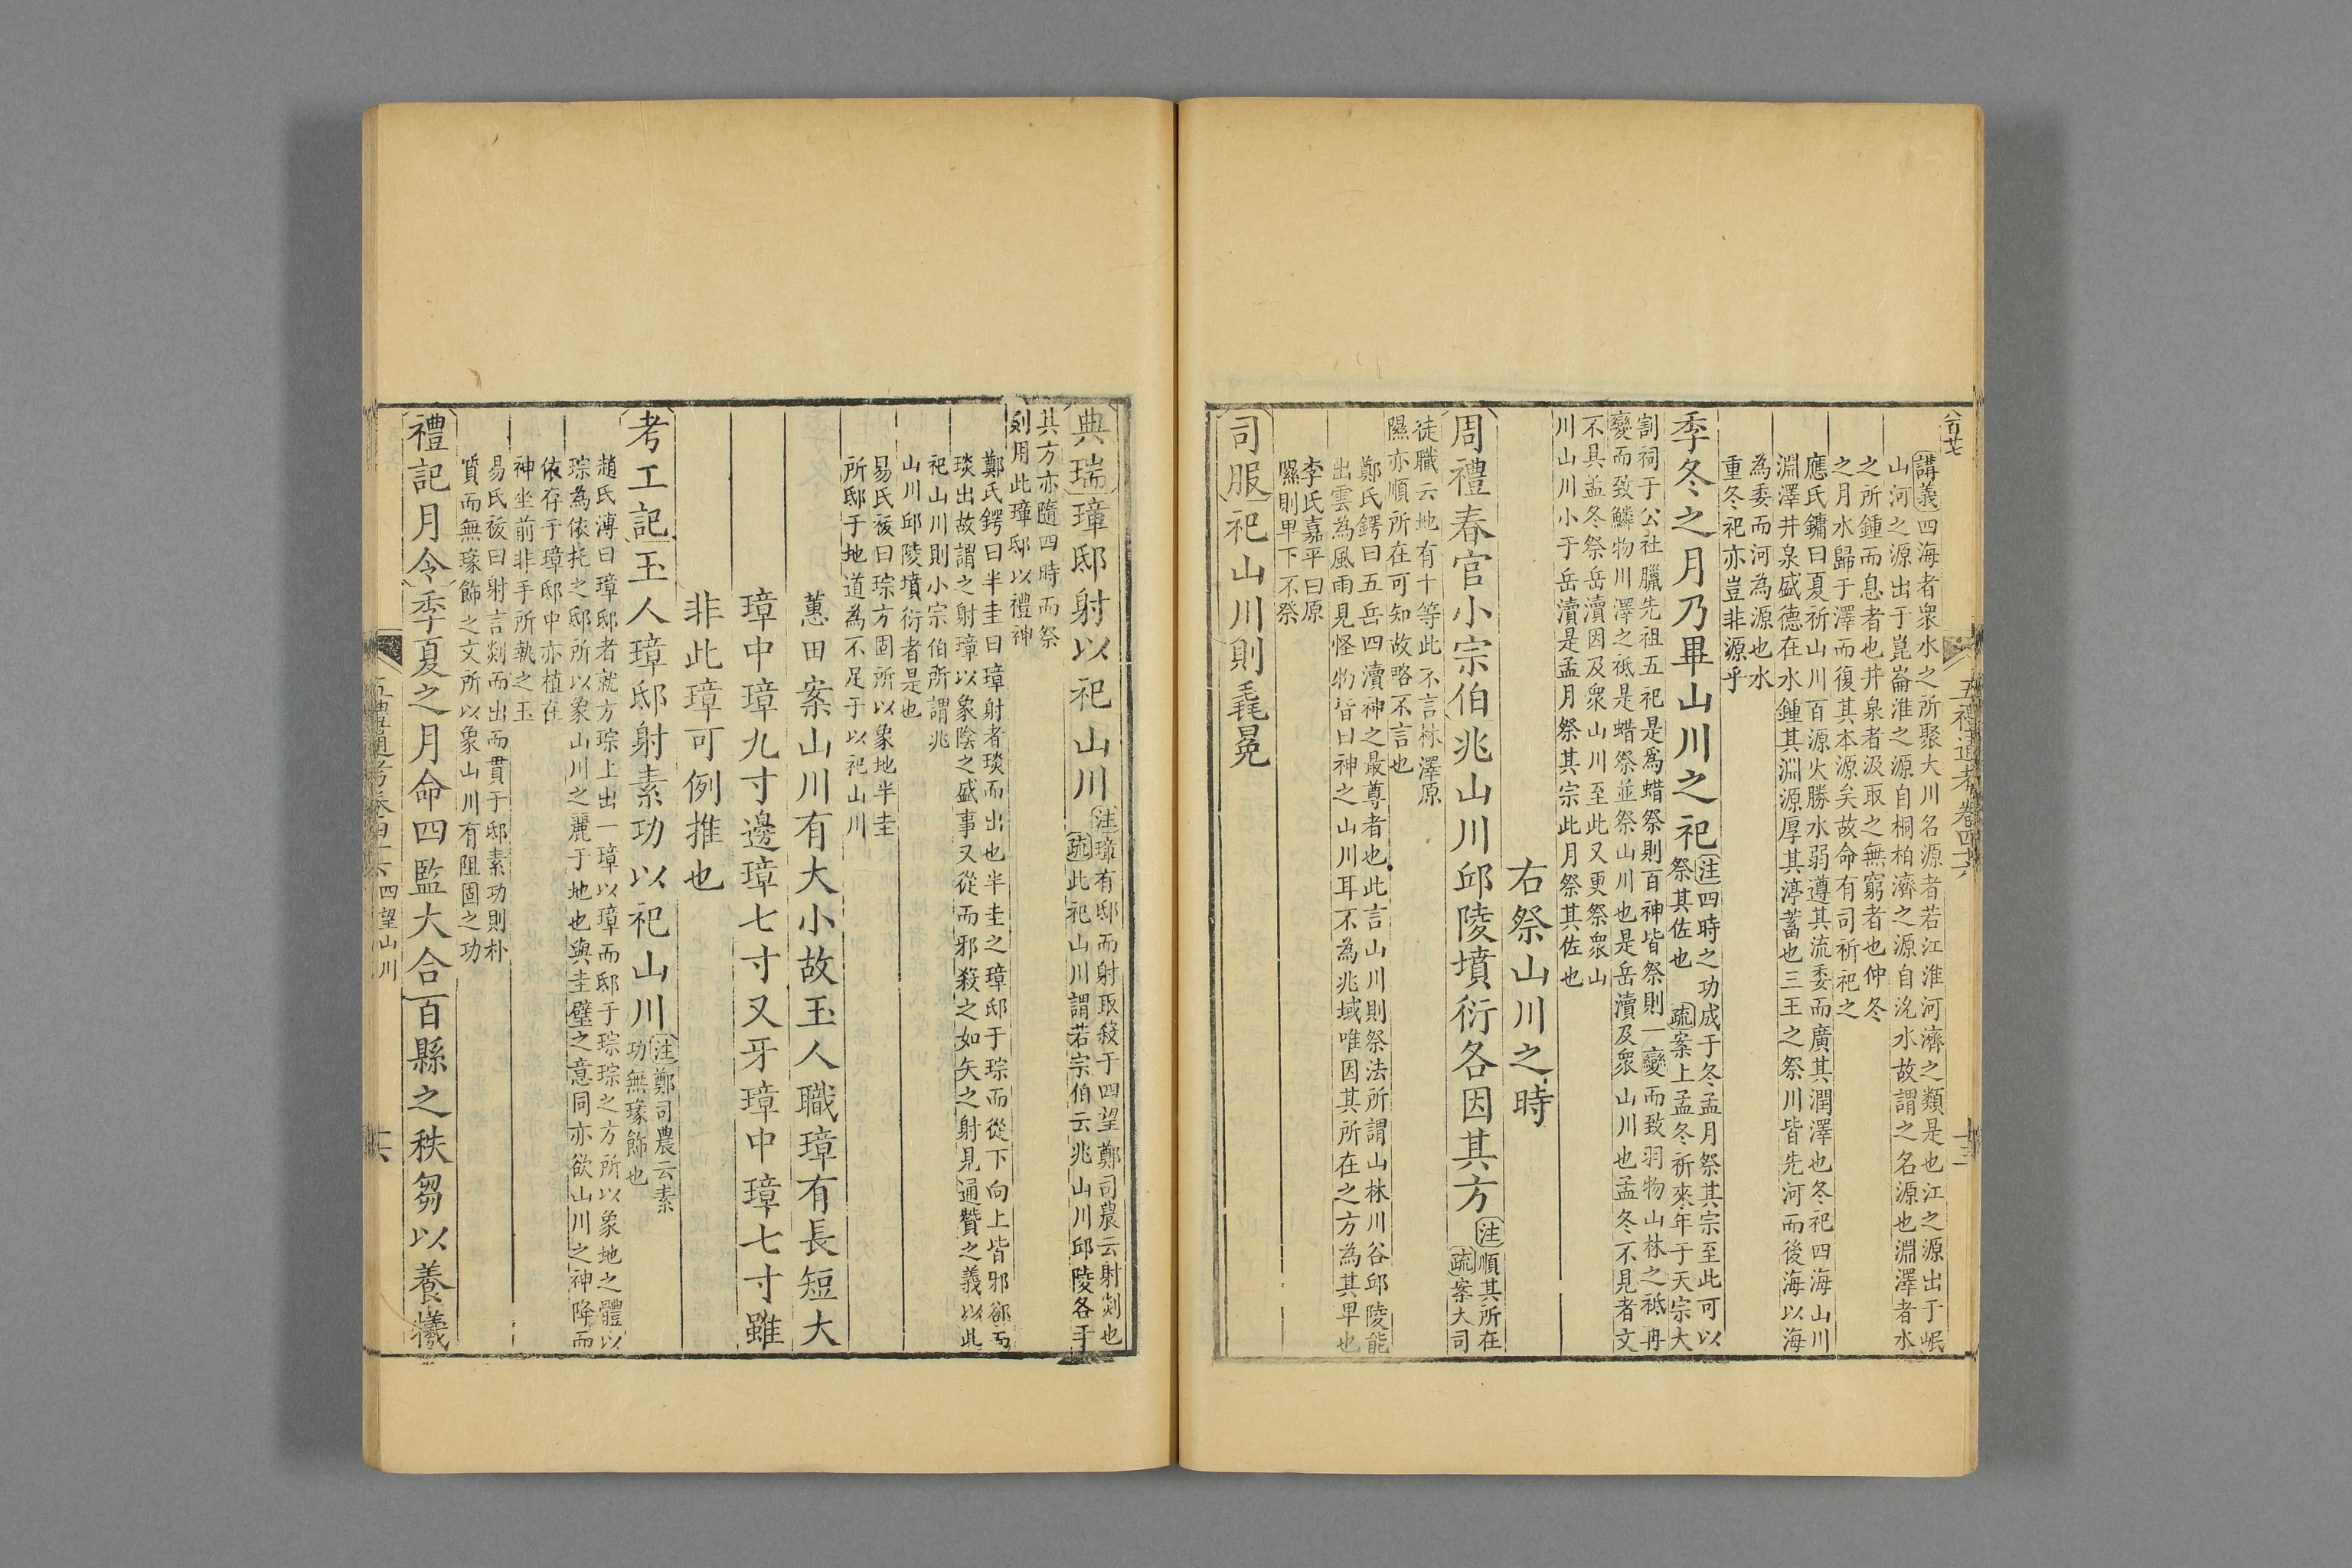 五禮通考 卷四十六
講義四海者衆水之所聚大川名源者若江淮河濟之類是也江之源出于岷
山河之源出于崑崙淮之源自桐柏濟之源自沇水故謂之名源也淵澤者水
之所鍾而息者也井泉者汲取之無窮者也仲冬
之月水歸于澤而復其本源矣故命有司祈祀之
應氏鏞曰夏祈山川百源火勝水弱遵其流委而廣其潤澤也冬祀四海山川
淵澤井泉盛德在水鍾其淵源厚其渟蓄也三王之祭川皆先河而後海以海
為委而河為源也水
重冬祀亦豈非源乎
季冬之月乃畢山川之祀
注四時之功成于冬孟月祭其宗至此可以
祭其佐也 疏案上孟冬祈來年于天宗大
割祠于公社臘先祖五祀是爲蜡祭則百神皆祭則一變而致羽物山林之祇再
變而致鱗物川澤之祇是蜡祭並祭山川也是岳瀆及衆山川也孟冬不見者文
不具孟冬祭岳瀆因及衆山川至此又更祭衆山
川山川小于岳瀆是孟月祭其宗此月祭其佐也
右祭山川之時
周禮春官小宗伯兆山川邱陵墳衍各因其方
注順其所在
疏案大司
徒職云地有十等此不言林澤原
隰亦順所在可知故略不言也
鄭氏鍔曰五岳四瀆神之最尊者也此言山川則祭法所謂山林川谷邱陵能
出雲為風雨見怪物皆曰神之山川耳不為兆域唯因其所在之方為其卑也
李氏嘉平曰原
隰則卑下不祭
司服祀山川則毳冕
典瑞璋邸射以祀山川
注璋有邸而射取殺于四望鄭司農云射剡也
疏此祀山川謂若宗伯云兆山川邱陵各于
其方亦隨四時而祭
則用此璋邸以禮神
鄭氏鍔曰半圭曰璋射者琰而出也半圭之璋邸于琮而從下向上皆邪卻而
琰出故謂之射璋以象陰之盛事又從而邪殺之如矢之射見通贊之義以此
祀山川則小宗伯所謂兆
山川邱陵墳衍者是也
易氏祓曰琮方固所以象地半圭
所邸于地道為不足于以祀山川
蕙田案山川有大小故玉人職璋有長短大
璋中璋九寸邊璋七寸又牙璋中璋七寸雖
非此璋可例推也
考工記玉人璋邸射素功以祀山川
注鄭司農云素
功無瑑飾也
趙氏溥曰璋邸者就方琮上出一璋以璋而邸于琮琮之方所以象地之體以
琮為依托之邸所以象山川之麗于地也與圭璧之意同亦欲山川之神降而
依存于璋邸中亦植在
神坐前非手所執之玉
易氏祓曰射言剡而出而貫于邸素功則朴
質而無瑑飾之文所以象山川有阻固之功
禮記月令季夏之月命四監大合百縣之秩芻以養犧
五禮通考 卷四十六 四望山川